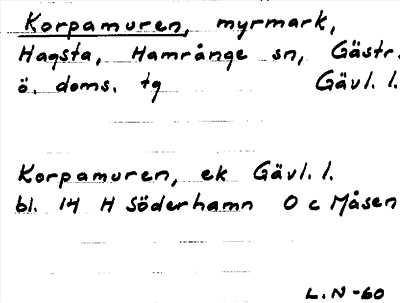 Korpamuren, myrmark,
Hagsta, Hamrånge sn, Gästr.
ö. doms. tg Gävl. l.
Korpamuren, ek Gävl. l.
bl. 14 H Söderhamn O c Måsen
L. N -60